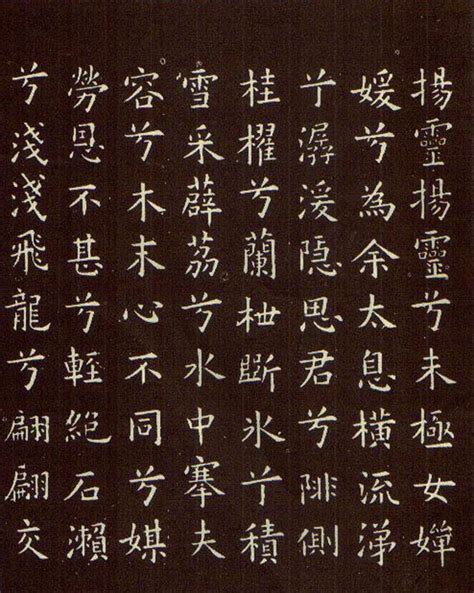 揚靈揚靈兮未極女嬋
媛兮為余太息橫流涕
兮潺湲隱思君兮陫側
桂櫂兮蘭枻斷氷兮積
雪采薜荔兮水中搴夫
容兮木末心不同兮媒
勞恩不甚兮輕絕石瀨
兮淺淺飛龍兮翩翩交